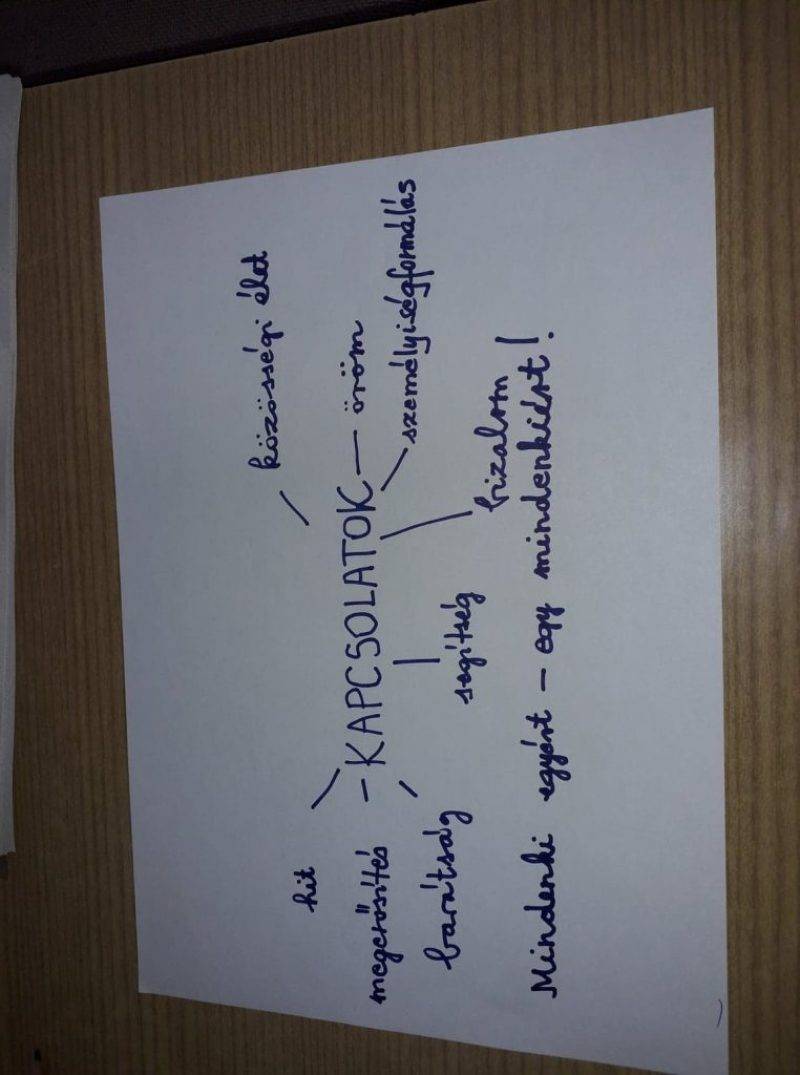 közösségi élet
hit
megerősítés - KAPCSOLATOK - öröm
személyiségformálás
barátság
segítség
bizalom
Mindenki egyért - egy mindenkiért!